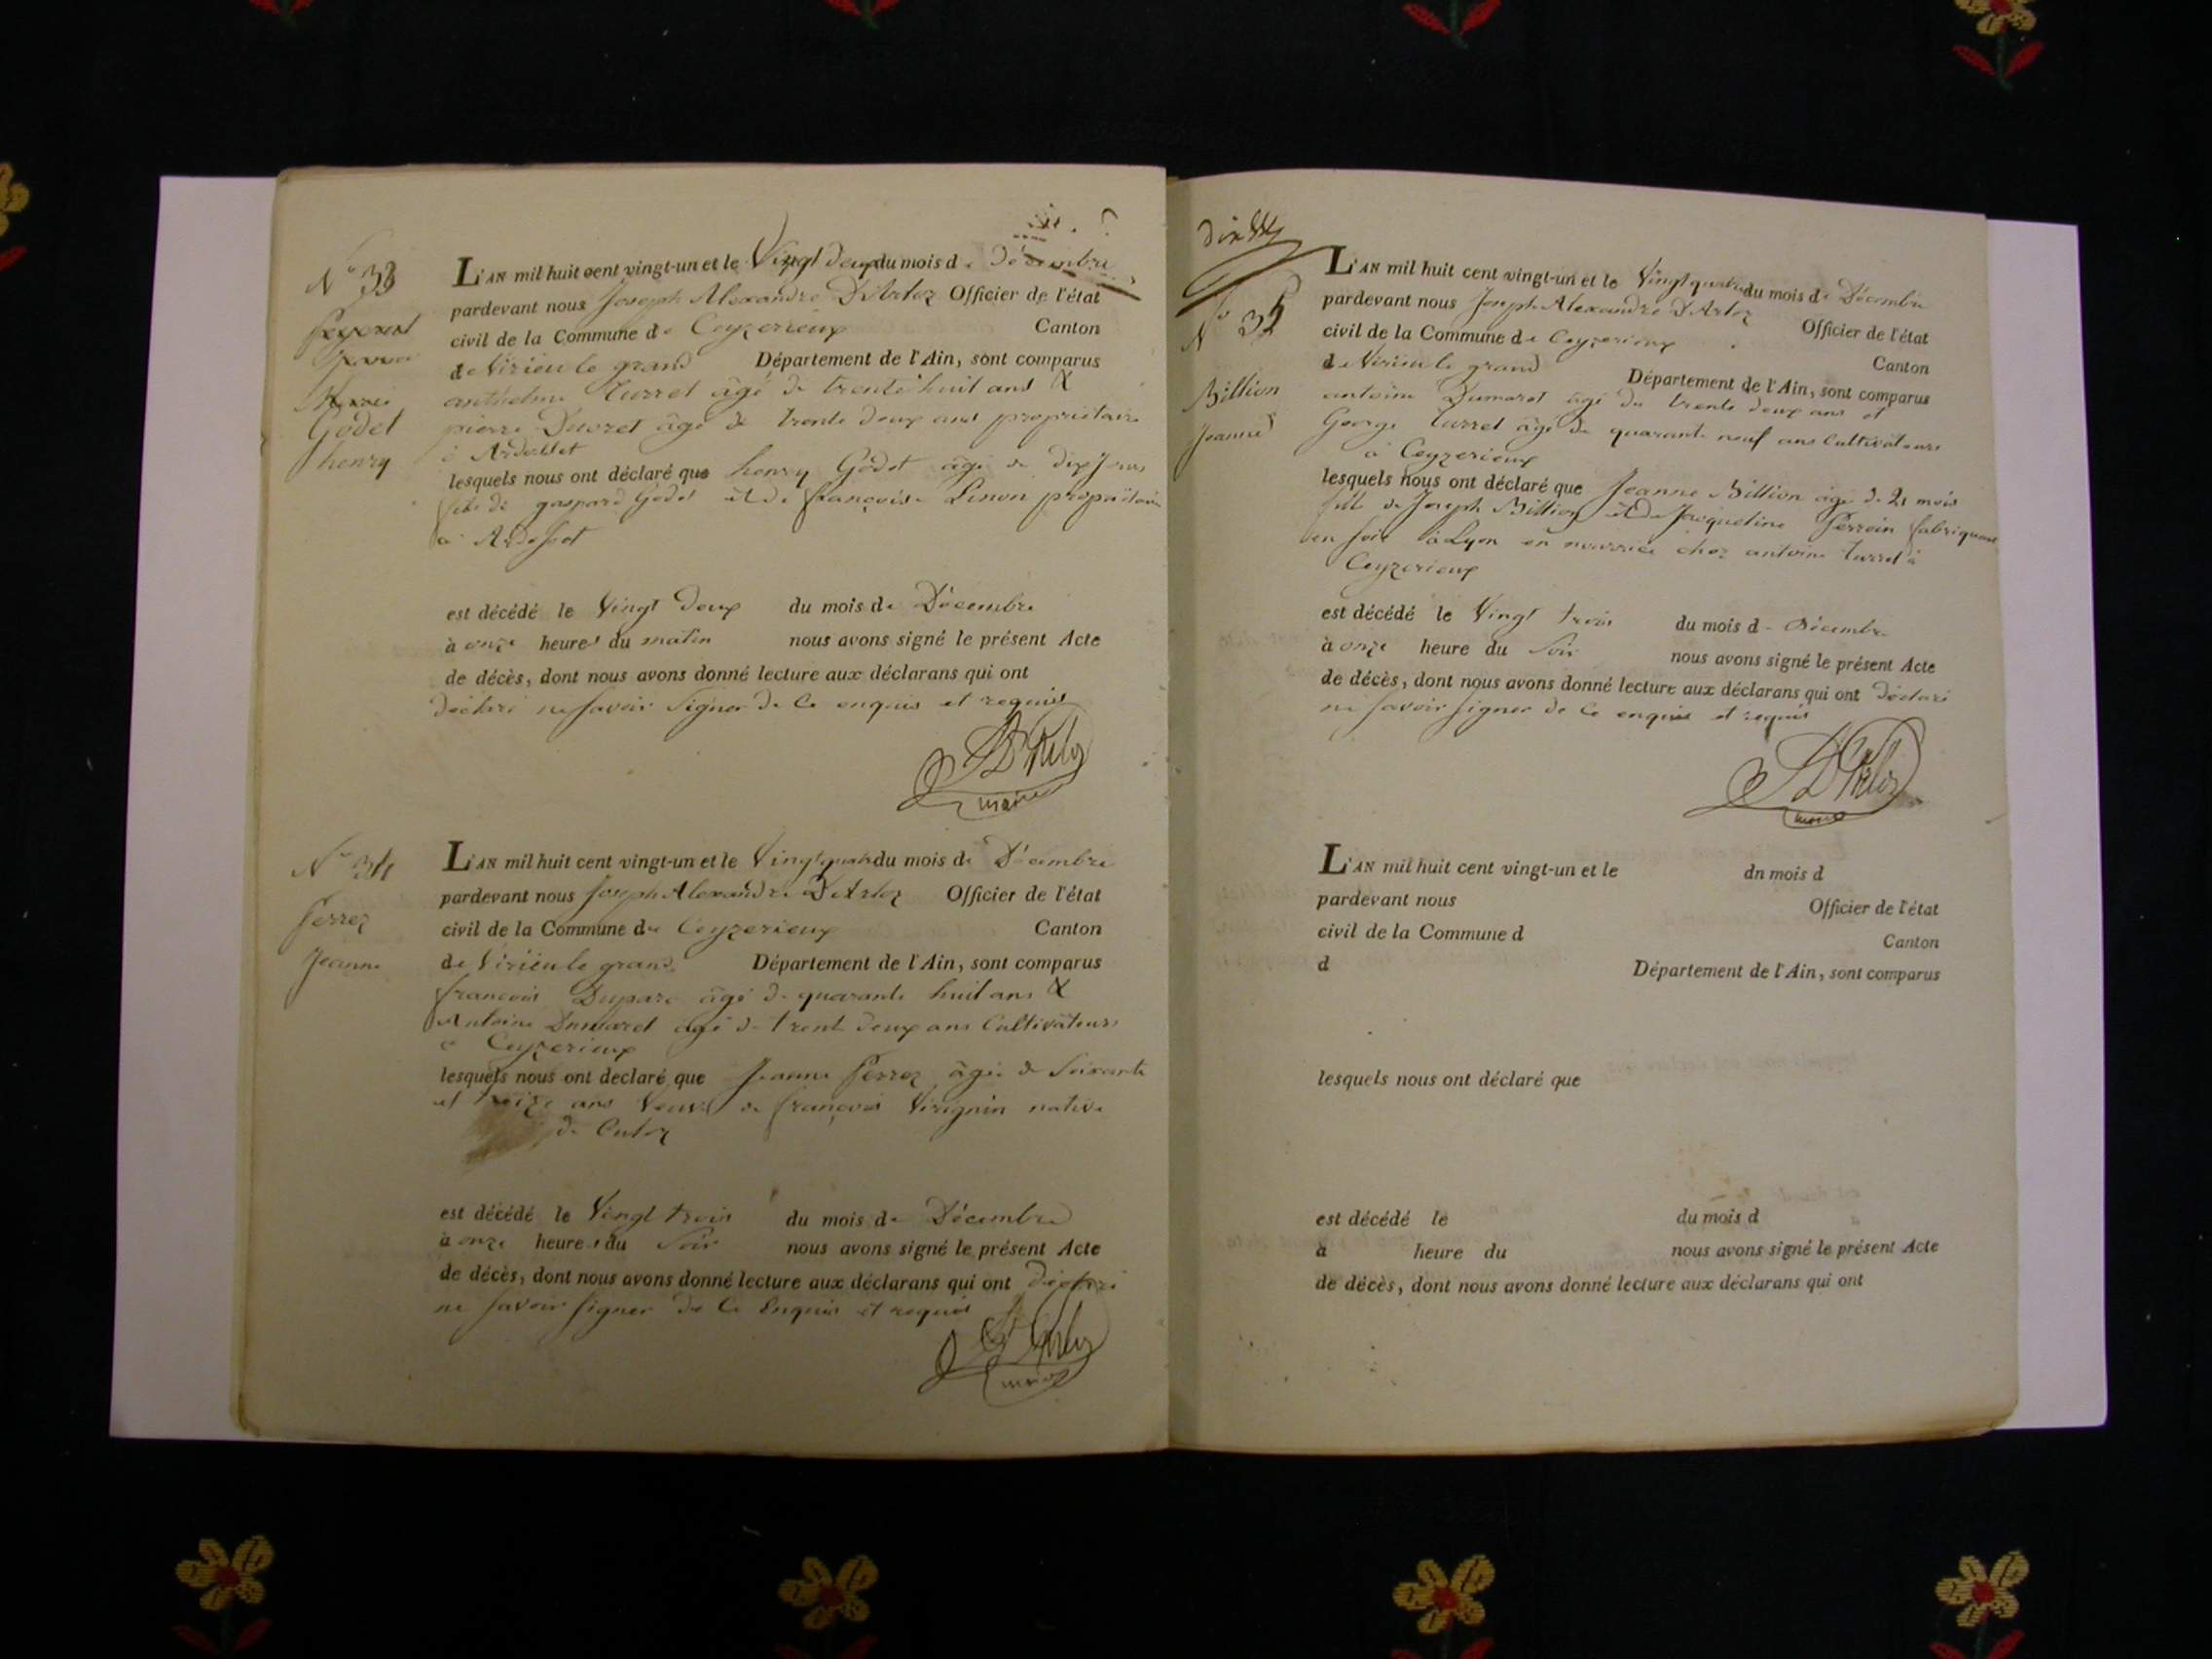 N° 33
Godet
henry
L'AN mil huit cent vingt-un et le Vingt deux du mois de Décembre
pardevant nous Joseph Alexandre D'Arloz Officier de l'état
civil de la Commune de Ceyzerieux Canton
de Virieu le grand Département de l'Ain, sont comparus
anthelme Turrel âgé de trente huit ans &
pierre Ducret âgé de trente deux ans propriétaire
à Ardosset
lesquels nous ont déclaré que henry Godet âgé de dix Jours
fils de gaspard Godet et de françoise propriétaire
à Ardosset
est décédé le Vingt deux du mois de Décembre
à onze heures du matin nous avons signé le présent Acte
de décès, dont nous avons donné lecture aux déclarans qui ont
déclaré ne savoir Signer de Ce enquis et requis
D'Arloz
maire
N° 34
Perrez
Jeanne
L'AN mil huit cent vingt-un et le Vingt quatre du mois de Décembre
pardevant nous Joseph Alexandre D'Arloz Officier de l'état
civil de la Commune de Ceyzerieux Canton
de Virieu le grand Département de l'Ain, sont comparus
françois Duparc âgé de quarante huit ans &
Antoine Dumarest âgé de trente deux ans Cultivateurs
à Ceyzerieux
lesquels nous ont declaré que Jeanne Perrez âgée de Soixante
et treize ans Veuve de françois Virignin native
de Culoz
est décédé le Vingt trois du mois de Décembre
à onze heures du Soir nous avons signé le présent Acte
de décès, dont nous avons donné lecture aux déclarans qui ont déclaré
ne savoir signer de Ce Enquis et requis
D'Arloz
maire
N° 35
Billion
Jeanne
L'AN mil huit cent vingt-un et le Vingt quatre du mois de Décembre
pardevant nous Joseph Alexandre D'Arloz Officier de l'état
civil de la Commune de Ceyzerieux Canton
de Virieu le grand Département de l'Ain, sont comparus
antoine Dumarest âgé de trente deux ans et
George Turrel âgé de quarante neuf ans Cultivateurs
à Ceyzerieux
lesquels nous ont déclaré que Jeanne Billion âgé de 21 mois
fille de Joseph Billion et de Jacqueline Perrein fabriquant
en soie à Lyon en nourrice chez antoine turrel à
Ceyzerieux
est décédé le Vingt trois du mois de Décembre
à onze heure du Soir nous avons signé le présent Acte
de décès, dont nous avons donné lecture aux déclarans qui ont déclaré
ne savoir signer de Ce enquis et requis
D'Arloz
maire
L'AN mil huit cent vingt-un et le dn mois d
pardevant nous Officier de l'état
civil de la Commune d Canton
d Département de l'Ain, sont comparus
lesquels nous ont déclaré que
est décédé le du mois d
à heure du nous avons signé le présent Acte
de décès, dont nous avons donné lecture aux déclarans qui ont